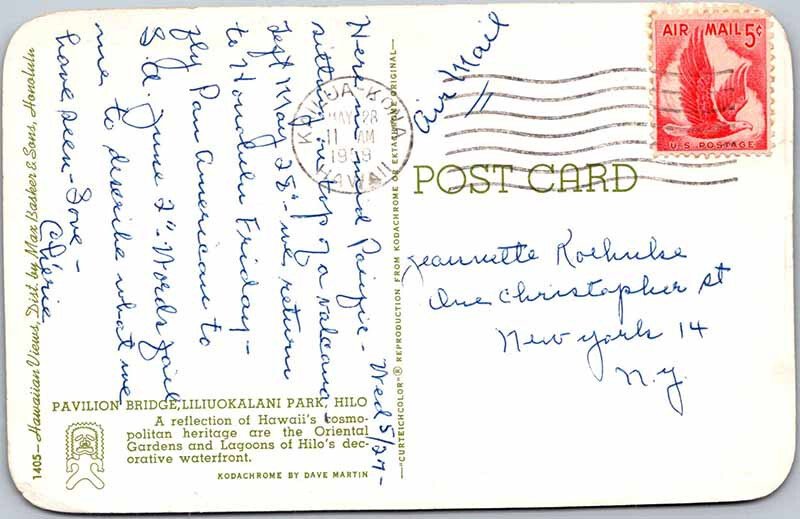 Here in mid Pacific - Wed 5/27 -
sitting on top of a valcano -
May 28th - we return
to Honolulu Friday -
fly Pan American to
June 2nd. Words fail
me to describe what we
have seen - Love -
Air Mail
AIR MAIL 5¢
U.S. POSTAGE
KAILUA-KONA
MAY 28
11 AM
1959
HAWAII
POST CARD
Jeannette
One Christopher St
New York 14
N.Y.
PAVILION BRIDGE, LILIUOKALANI PARK, HILO
A reflection of Hawaii's cosmo-
politan heritage are the Oriental
Gardens and Lagoons of Hilo's dec-
orative waterfront.
KODACHROME BY DAVE MARTIN
1405—Hawaiian Views, Dist. by Max Basker & Sons, Honolulu
—"CURTEICHCOLOR"® REPRODUCTION FROM KODACHROME OR EKTACHROME ORIGINAL—